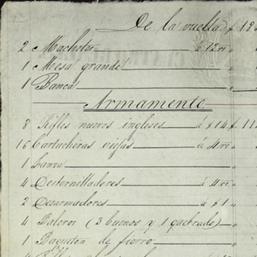 De la vuelta $ 12
2 Machetes à 12 rs
1 Mesa grande
1 Banca
Armamento
8 Rifles nuevos ingleses à $14 $ 112
16 Cartucheras viejas à 4 rs
1 Lanza
4 Destornilladores à 4 rs
2 Desarmadores à $ 1
4 Valeros (3 buenos y 1 quebrado)
1 Baqueton de fierro